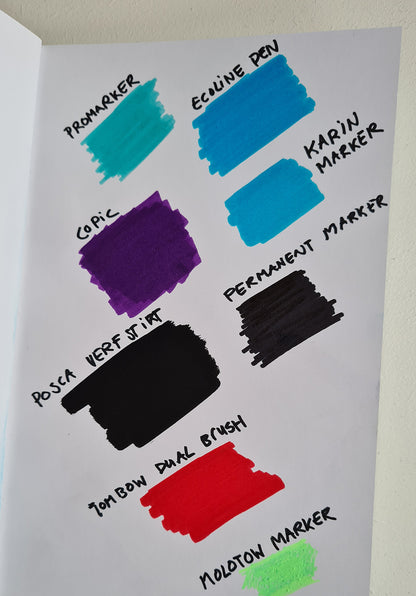 PROMARKER
ECOLINE PEN
KARIN
MARKER
COPIC
PERMANENT MARKER
POSCA VERFSTIFT
TOMBOW DUAL BRUSH
MOLOTOW MARKER